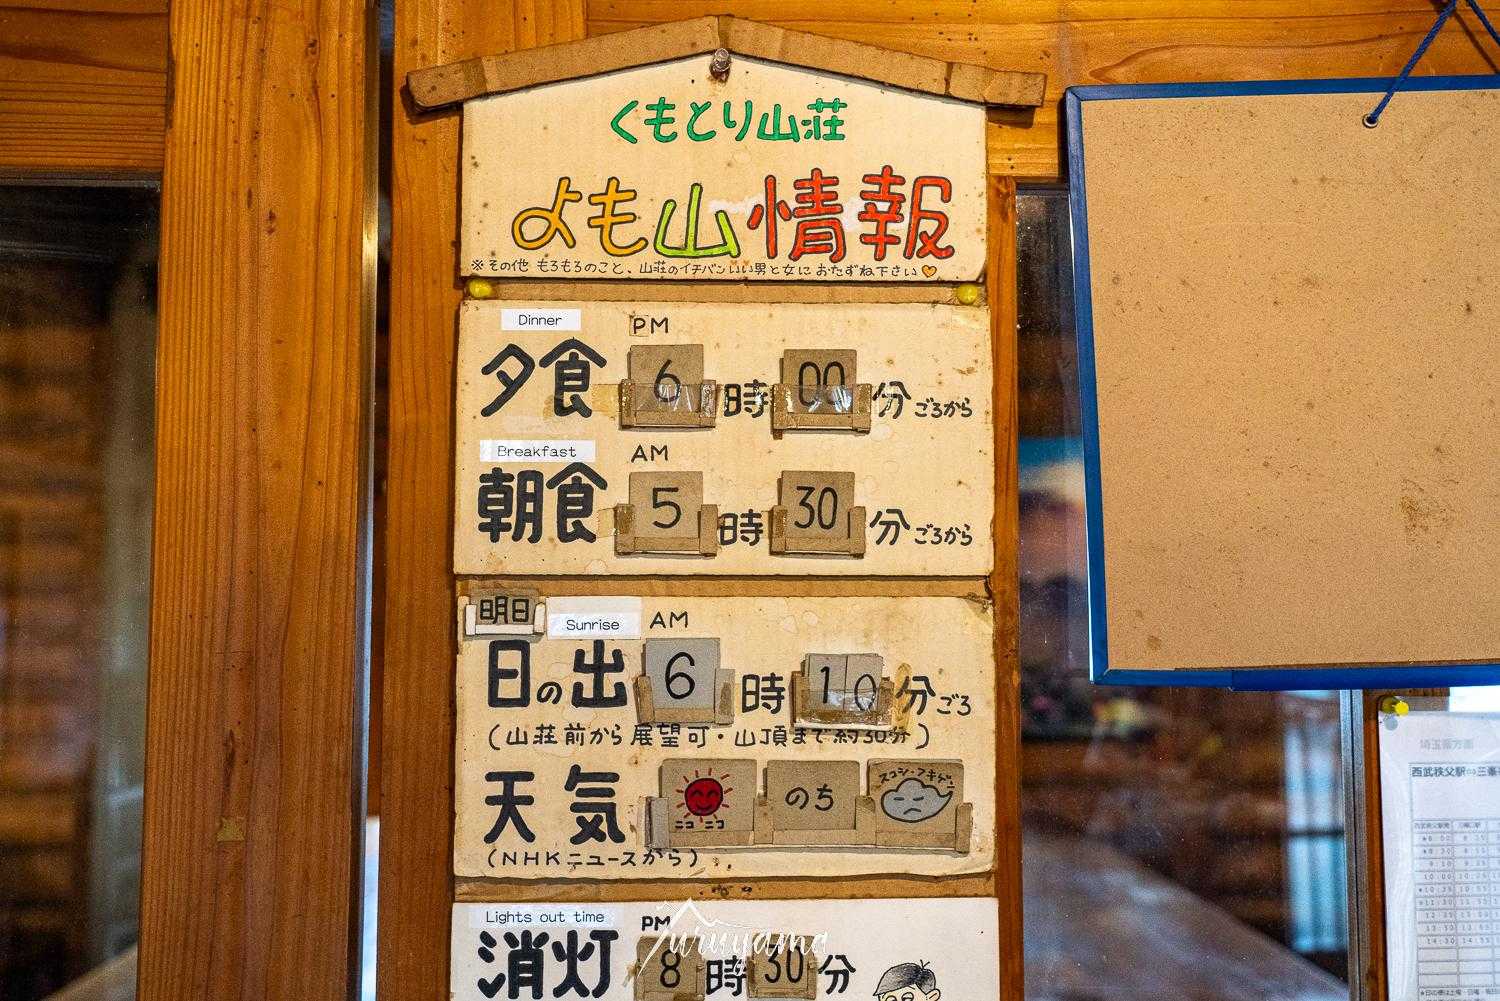 くもとり山荘
よも山情報
※その他 もろもろのこと、山荘のイチバンいい男と女に おたずね下さい♡
Dinner
PM
夕食 6時00分ごろから
Breakfast
AM
朝食 5時30分ごろから
明日
Sunrise
AM
日の出 6時10分ごろ
(山荘前から展望可・山頂まで約30分)
天気 ニコニコ のち スコシ・フキゲン
(NHKニュースから)
Lights out time
PM
消灯 8時30分
yuruyama
埼玉県方面
西武秩父駅⇔三峯